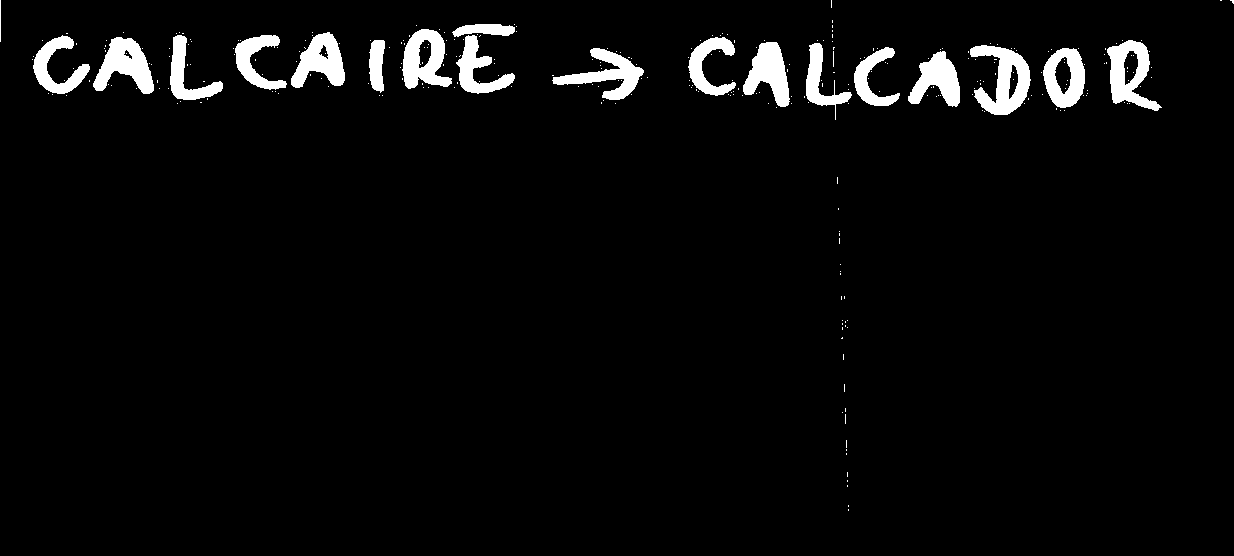 CALCAIRE → CALCADOR